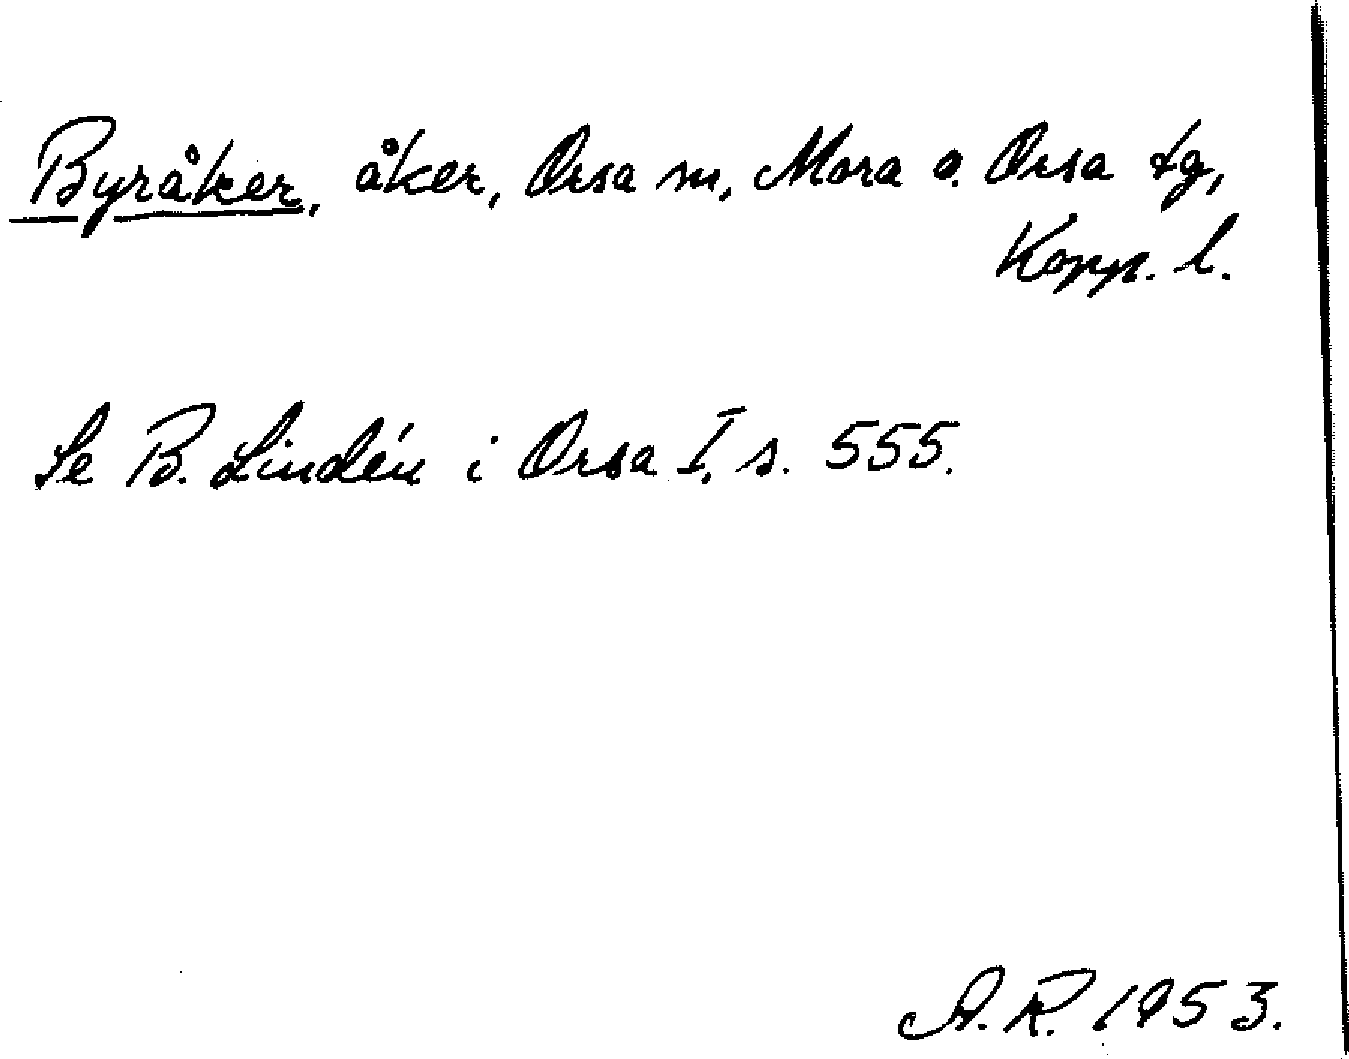 Byråker, åker, Orsa sn, Mora o. Orsa tg,
Kopp. l.
Se B. Lindén i Orsa I, s. 555.
A. R. 1953.